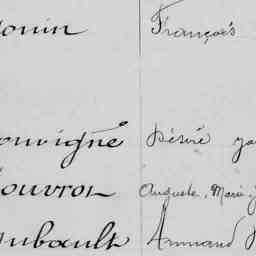 onin François
ouvigné Désiré
ouvrot Auguste, Marie
ubault Armand